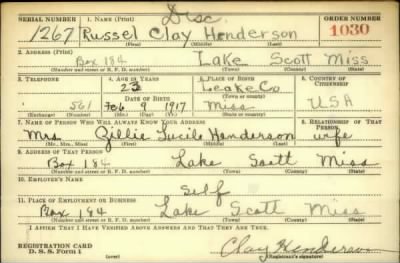 Disc.
SERIAL NUMBER 1. NAME (Print) ORDER NUMBER
1267 Russel Clay Henderson 1030
(First) (Middle) (Last)
2. ADDRESS (Print)
Box 184 Lake Scott Miss
(Number and street or R. F. D. number) (Town) (County) (State)
3. TELEPHONE 4. AGE IN YEARS 5. PLACE OF BIRTH 6. COUNTRY OF CITIZENSHIP
23 Leake Co.
DATE OF BIRTH (Town or county)
561 Feb 9 1917 Miss USA
(Exchange) (Number) (Mo.) (Day) (Yr.) (State or country)
7. NAME OF PERSON WHO WILL ALWAYS KNOW YOUR ADDRESS 8. RELATIONSHIP OF THAT PERSON
Mrs Zillie Lucile Henderson wife
(Mr., Mrs., Miss) (First) (Middle) (Last)
9. ADDRESS OF THAT PERSON
Box 184 Lake Scott Miss
(Number and street or R. F. D. number) (Town) (County) (State)
10. EMPLOYER'S NAME
self
11. PLACE OF EMPLOYMENT OR BUSINESS
Box 184 Lake Scott Miss
(Number and street or R. F. D. number) (Town) (County) (State)
I AFFIRM THAT I HAVE VERIFIED ABOVE ANSWERS AND THAT THEY ARE TRUE.
REGISTRATION CARD
D. S. S. Form 1 Clay Henderson
(Registrant's signature)